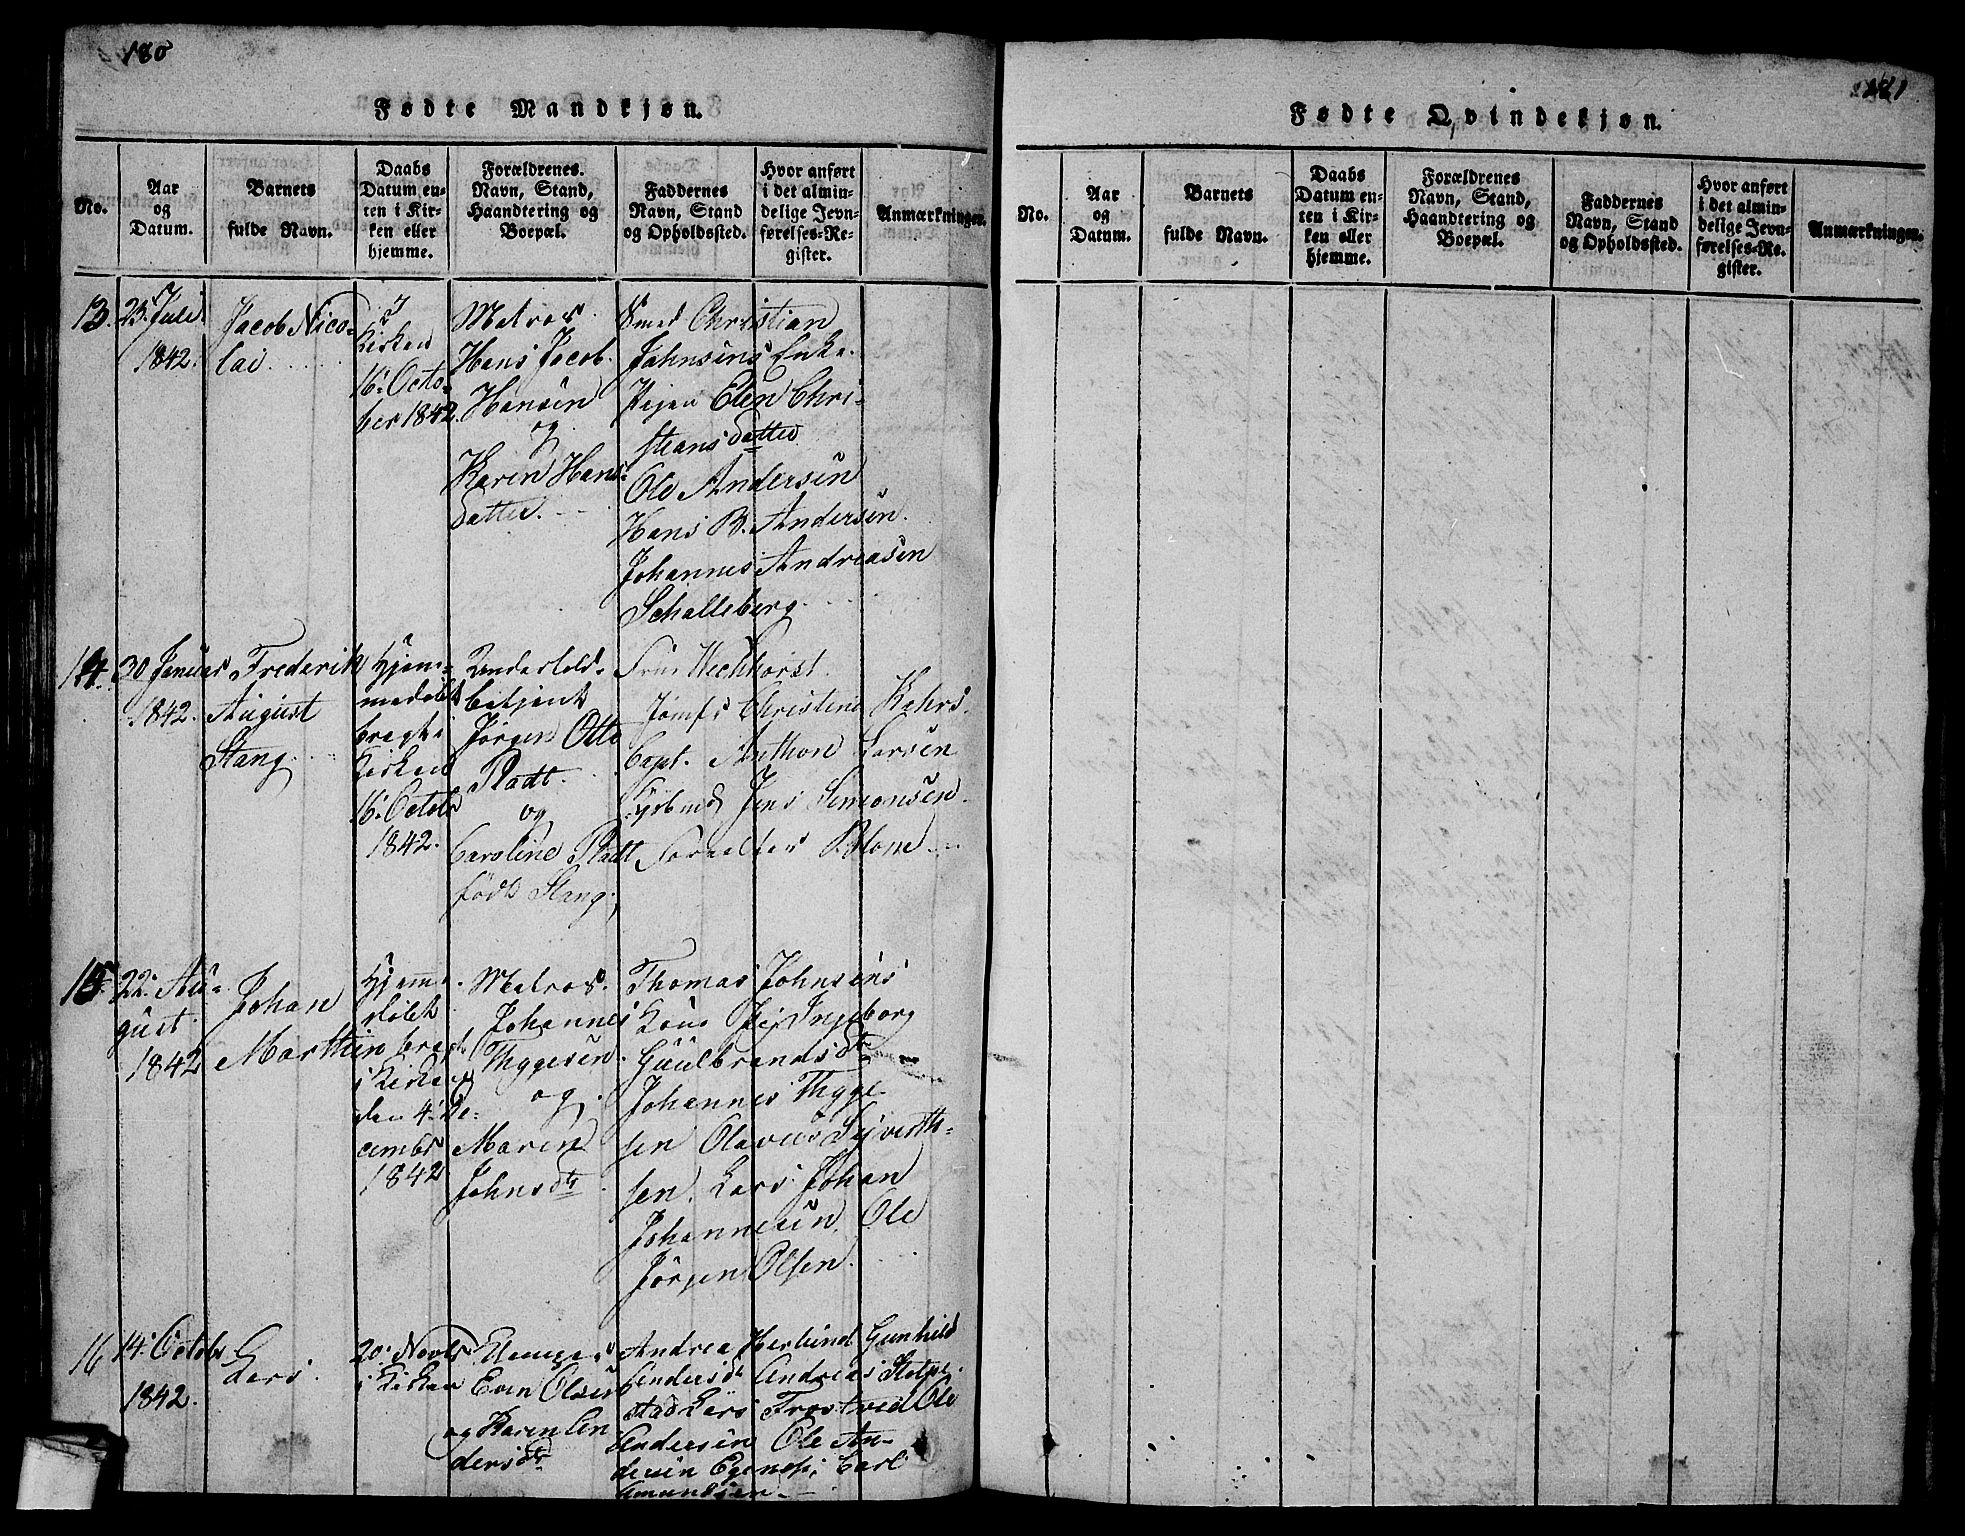 180
Fødte Mandkjøn.
No.
Aar
og
Datum.
Barnets
fulde Navn.
Daabs
Datum en-
ten i Kir-
ken eller
hjemme.
Forældrenes.
Navn, Stand,
Haandtering og
Boepæl.
Faddernes
Navn, Stand
og Opholdssted.
Hvor anført
i det almin-
delige Jevn-
førelses-Re-
gister.
Anmærkninger.
13.
23. Juli
1842.
Jacob Nico-
lai
Kirken
16. Octo-
ber 1842.
Matros.
Hans Jacob
Hansen
og
Karen Hans
datter.
Smed Christian
Jahnsens Enke.
Pigen Elen Chri-
stians datter
Ole Andersen
Hans B. Andersen.
Johannes Andreasen
Schalleberg.
14.
30 Januar
1842.
Frederik
August
Stang.
Hjem-
medøbt
bragt i
Kirken
16. Octobr
1842.
betjent
Jørgen Otto
Pladt.
og
Caroline Pladt
født Stang.
Fru Hechhorst.
Jomfr Christine Kahrs.
Capt. Anthon Larsen
Jens Simonsen.
Forvalter Blom
15.
22. Au-
gust.
1842
Johan
Marthin
Hjemme
døbt
bragt
i Kirken
den 4. De-
cembr
1842
Matros.
Johannes
Thygesen.
og
Maren
Johnsdtr
Thomas Johnsens
Kone Ingeborg
Guulbrandsdtr
Johannes Thyge-
sen Olaves Sejverth-
sen. Lars Johan
Johannesen. Ole
Jørgen Olsen.
16
14. Octobr
1842.
Lars.
20. Novbr
i Kirken
Even Olsen
og Karen An
dersdtr
Andrea Herlund Gunhild
Andersdr Andreas Stolpe-
stad Lars Frostved Ole
Andersen Ole An-
dersen Carl
Amundsen
181
Fødte Qvindekjøn.
No.
Aar
og
Datum.
Barnets
fulde Navn.
Daabs
Datum en-
ten i Kir-
ken eller
hjemme.
Forældrenes
Navn, Stand,
Haandtering og
Boepæl.
Faddernes
Navn, Stand
og Opholdssted.
Hvor anført
i det almin-
delige Jevn-
førelses-Re-
gister.
Anmærkninger.